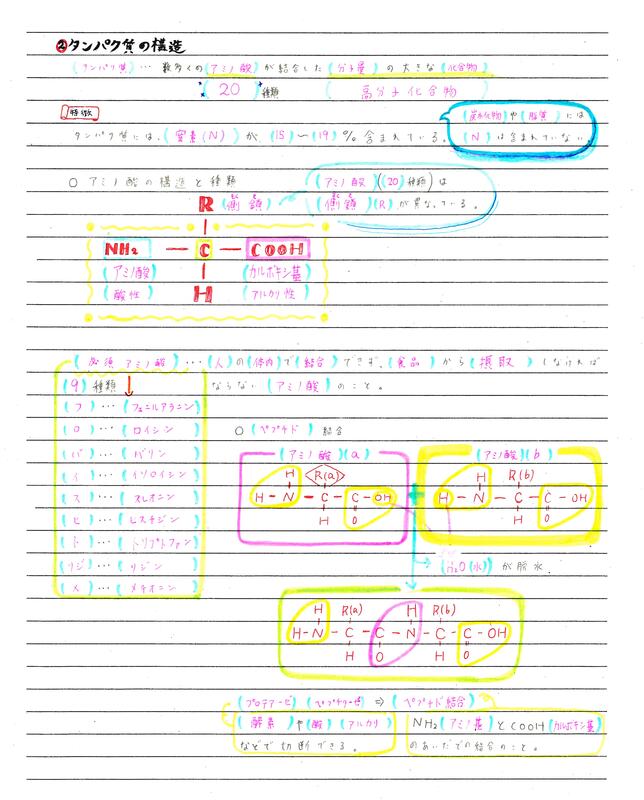 ②タンパク質の構造
(タンパク質)…数多くの(アミノ酸)が結合した(分子量)の大きな(化合物)
(20)種類 (高分子化合物)
特徴
(炭水化物)や(脂質)には
タンパク質には、(窒素(N))が、(15)〜(19)%含まれている。
(N)は含まれていない。
○ アミノ酸の構造と種類
(アミノ酸)((20)種類)は
R (側鎖)
(側鎖)(R)が異なっている。
NH₂ — C — COOH
(アミノ酸) (カルボキシ基)
(酸性) H (アルカリ性)
(必須アミノ酸)…(人)の(体内)で(結合)できず、(食品)から(摂取)しなければ
(9)種類
ならない(アミノ酸)のこと。
(フ)…(フェニルアラニン)
(ロ)…(ロイシン)
(バ)…(バリン)
(イ)…(イソロイシン)
(ス)…(スレオニン)
(ヒ)…(ヒスチジン)
(ト)…(トリプトファン)
(リジ)…(リジン)
(メ)…(メチオニン)
○(ペプチド)結合
(アミノ酸)(a) (アミノ酸)(b)
H R(a) H R(b)
H - N - C - C - OH + H - N - C - C - OH
H O H O
(H₂O(水))が脱水
H R(a) H R(b)
H - N - C - C - N - C - C - OH
H O H O
(プロテアーゼ)(ペプチターゼ)⇒(ペプチド結合)
(酵素)や(酸)(アルカリ)
などで切断できる。
NH₂(アミノ基)とCOOH(カルボキシ基)
のあいだでの結合のこと。